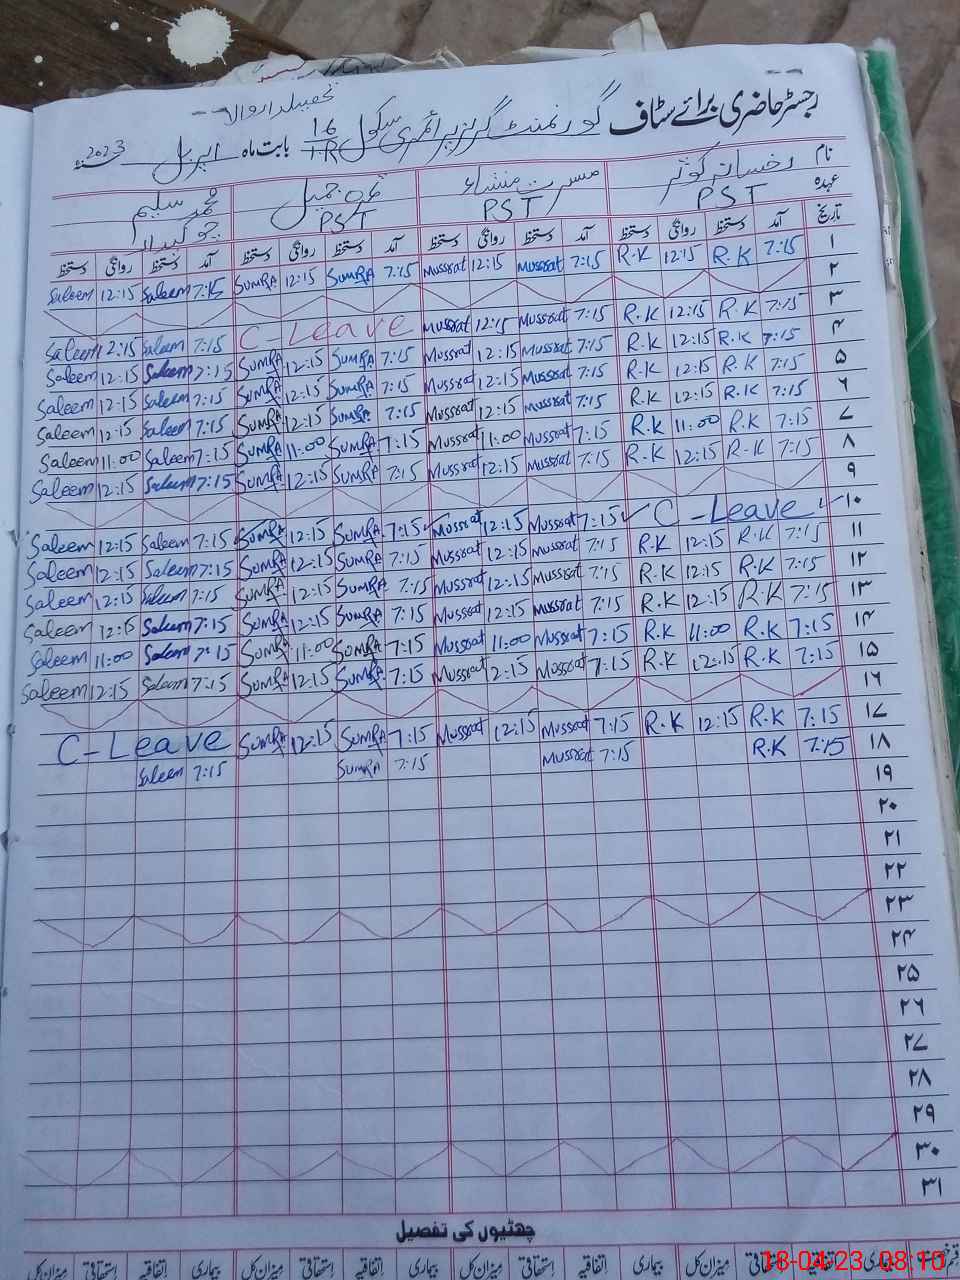 رجسٹر حاضری برائے سٹاف گورنمنٹ گرلز پرائمری سکول 16/1-R بابت ماہ اپریل 2023ء
نام رخسانہ کوثر مسرت منشاء محمد سلیم
عہدہ PST PST PST چوکیدار
تاریخ آمد دستخط روانگی دستخط آمد دستخط روانگی دستخط آمد دستخط روانگی دستخط آمد دستخط روانگی دستخط
۱ 7:15 R.K 12:15 R.K 7:15 Mussrat 12:15 Mussrat 7:15 SUMRA 12:15 SUMRA 7:15 Saleem 12:15 Saleem
۲
۳ 7:15 R.K 12:15 R.K 7:15 Mussrat 12:15 Mussrat C-Leave 7:15 Saleem 12:15 Saleem
۴ 7:15 R.K 12:15 R.K 7:15 Mussrat 12:15 Mussrat 7:15 SUMRA 12:15 SUMRA 7:15 Saleem 12:15 Saleem
۵ 7:15 R.K 12:15 R.K 7:15 Mussrat 12:15 Mussrat 7:15 SUMRA 12:15 SUMRA 7:15 Saleem 12:15 Saleem
۶ 7:15 R.K 12:15 R.K 7:15 Mussrat 12:15 Mussrat 7:15 SUMRA 12:15 SUMRA 7:15 Saleem 12:15 Saleem
۷ 7:15 R.K 11:00 R.K 7:15 Mussrat 11:00 Mussrat 7:15 SUMRA 11:00 SUMRA 7:15 Saleem 11:00 Saleem
۸ 7:15 R.K 12:15 R.K 7:15 Mussrat 12:15 Mussrat 7:15 SUMRA 12:15 SUMRA 7:15 Saleem 12:15 Saleem
۹
۱۰ C-Leave 7:15 Mussrat 12:15 Mussrat 7:15 SUMRA 12:15 SUMRA 7:15 Saleem 12:15 Saleem
۱۱ 7:15 R.K 12:15 R.K 7:15 Mussrat 12:15 Mussrat 7:15 SUMRA 12:15 SUMRA 7:15 Saleem 12:15 Saleem
۱۲ 7:15 R.K 12:15 R.K 7:15 Mussrat 12:15 Mussrat 7:15 SUMRA 12:15 SUMRA 7:15 Saleem 12:15 Saleem
۱۳ 7:15 R.K 12:15 R.K 7:15 Mussrat 12:15 Mussrat 7:15 SUMRA 12:15 SUMRA 7:15 Saleem 12:15 Saleem
۱۴ 7:15 R.K 11:00 R.K 7:15 Mussrat 11:00 Mussrat 7:15 SUMRA 11:00 SUMRA 7:15 Saleem 11:00 Saleem
۱۵ 7:15 R.K 12:15 R.K 7:15 Mussrat 12:15 Mussrat 7:15 SUMRA 12:15 SUMRA 7:15 Saleem 12:15 Saleem
۱۶
۱۷ 7:15 R.K 12:15 R.K 7:15 Mussrat 12:15 Mussrat 7:15 SUMRA 12:15 SUMRA C-Leave
۱۸ 7:15 R.K 7:15 Mussrat 7:15 SUMRA 7:15 Saleem
۱۹
۲۰
۲۱
۲۲
۲۳
۲۴
۲۵
۲۶
۲۷
۲۸
۲۹
۳۰
۳۱
چھٹیوں کی تفصیل
اتفاقیہ استحقاقی میزان کل بیماری اتفاقیہ استحقاقی میزان کل بیماری اتفاقیہ استحقاقی میزان کل بیماری اتفاقیہ استحقاقی میزان کل
18-04-23 08:10